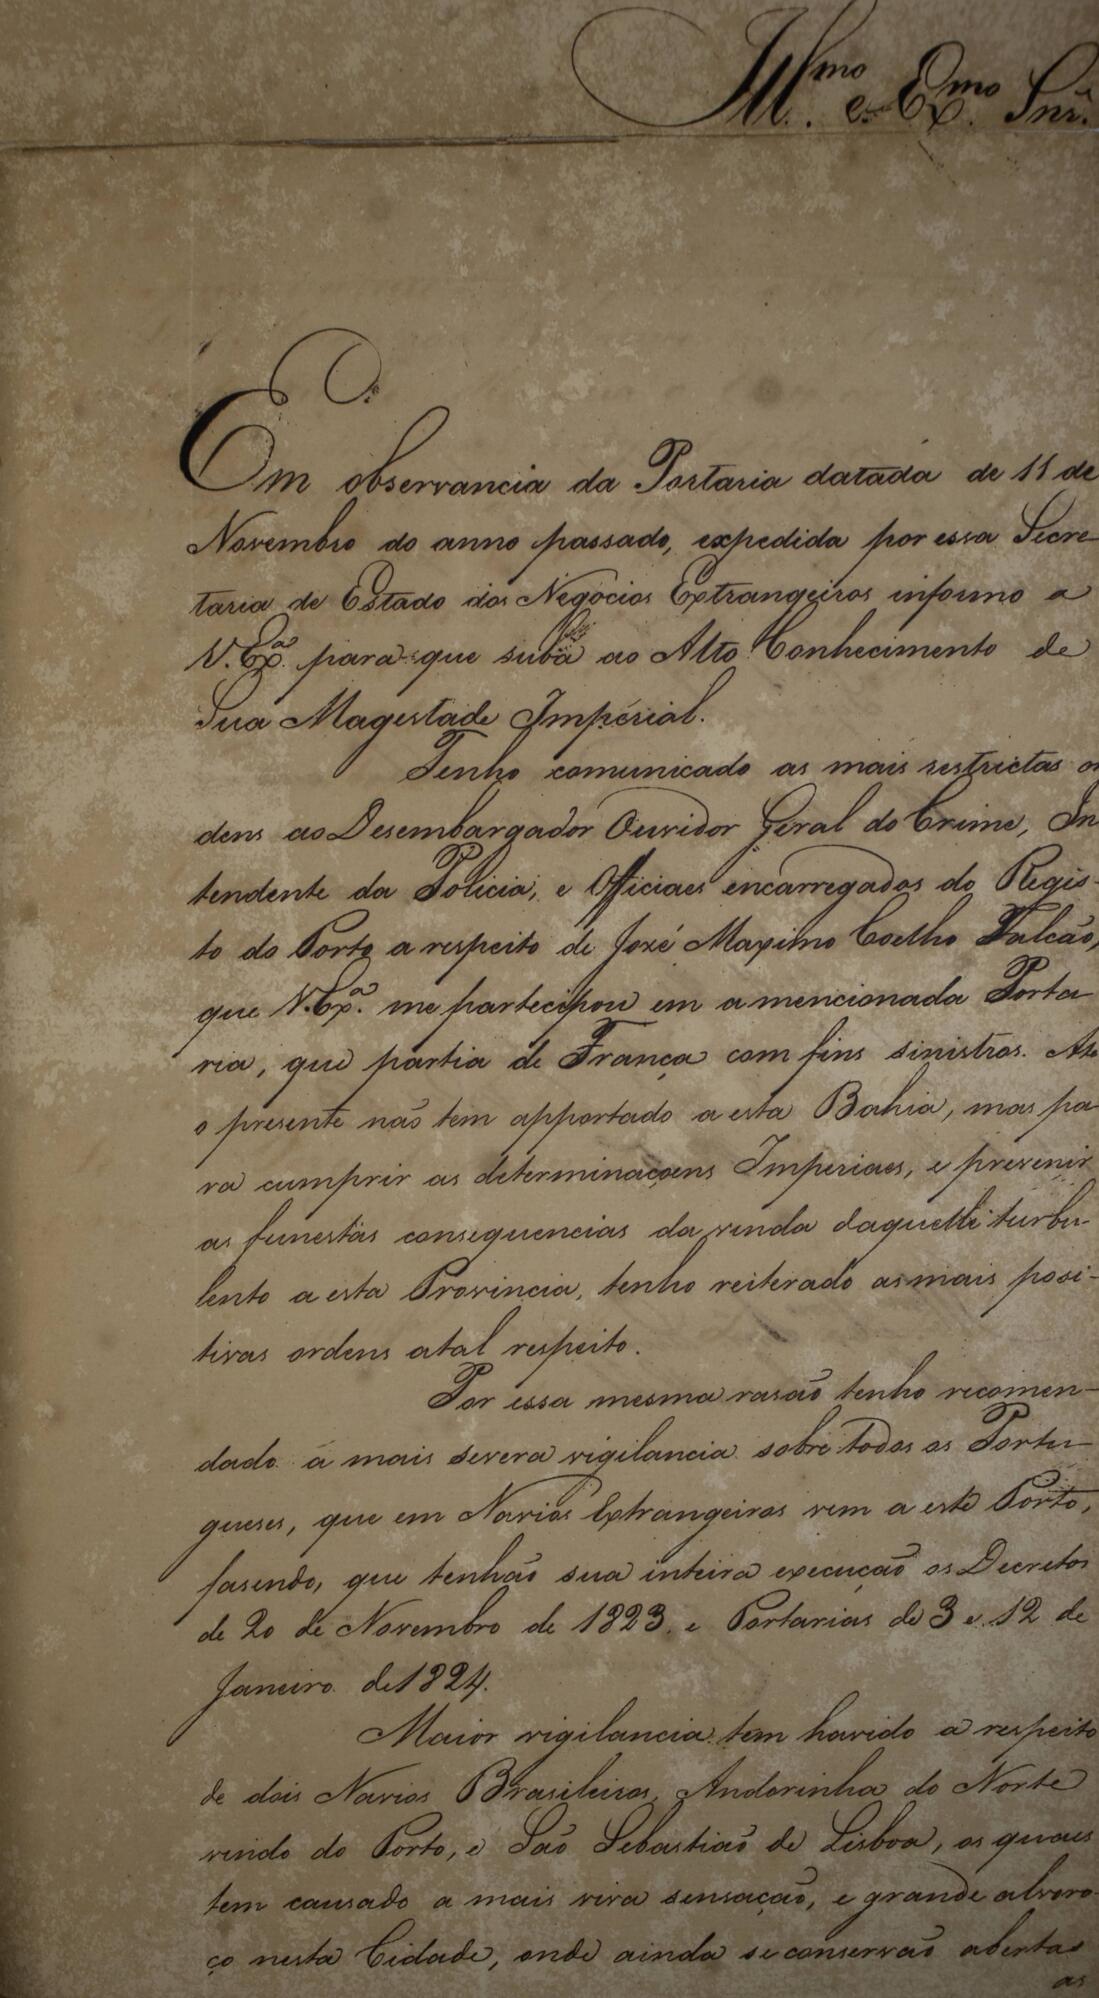 Ill.mo e Ex.mo Snr.
Em observancia da Portaria datada de 11 de
Novembro do anno passado, expedida por essa Secre-
taria de Estado dos Negocios Extrangeiros informo a
V. Ex.a para que suba ao Alto Conhecimento de
Sua Magestade Imperial.
Tenho comunicado as mais restrictas or
dens ao Desembargador Ouvidor Geral do Crime, In
tendente da Policia, e Officiaes encarregados do Regis-
to do Porto a respeito de José Maximo Coelho Falcão,
que V. Ex.a me partecipou em a mencionada Porta
ria, que partia de França com fins sinistros. Ate
o presente não tem apportado a esta Bahia, mas pa
ra cumprir as determinaçoens Imperiaes, e prevenir
as funestas consequencias da vinda daquelle turbu-
lento a esta Provincia, tenho reiterado as mais posi-
tivas ordens atal respeito.
Por essa mesma rasão tenho recomen-
dado a mais severa vigilancia sobre todos os Portu-
gueses, que em Navios Extrangeiros vem a este Porto,
fasendo, que tenhão sua inteira execução os Decretos
de 20 de Novembro de 1823 e Portarias de 3 e 12 de
Janeiro de 1824.
Maior vigilancia tem havido a respeito
de dois Navios Brasileiros, Andorinha do Norte
vindo do Porto, e São Sebastião de Lisboa, os quaes
tem causado a mais viva sensação, e grande alvoro-
ço nesta Cidade, onde ainda se conservão abertas
as